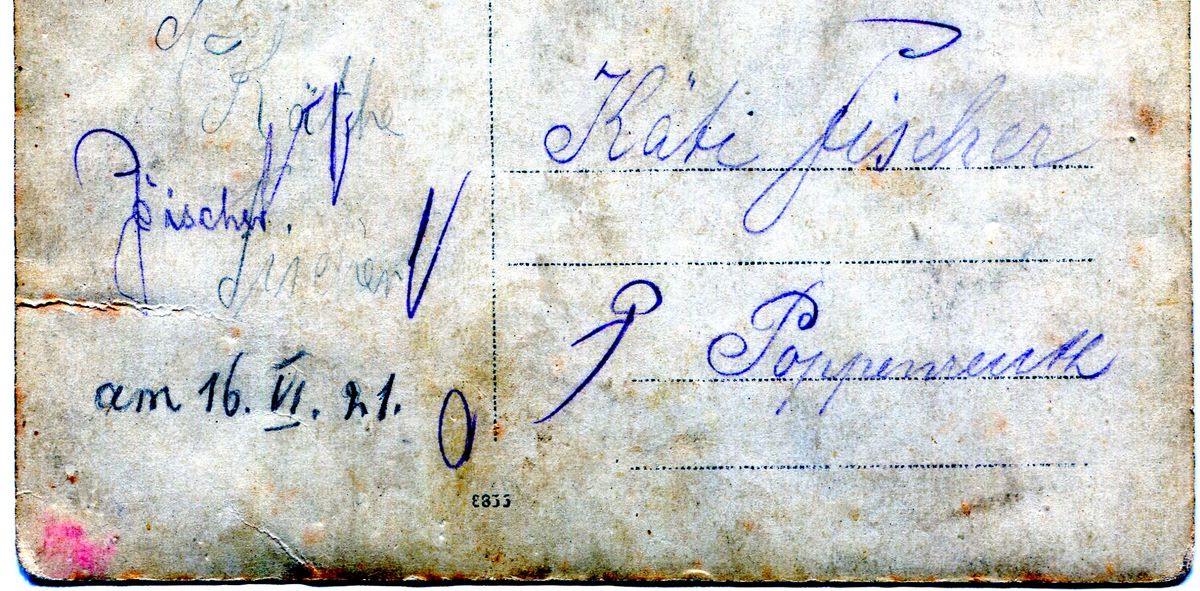 Käthe
Fischer.
Fischer
am 16. VI. 21.
Käti Fischer
Poppenreuth